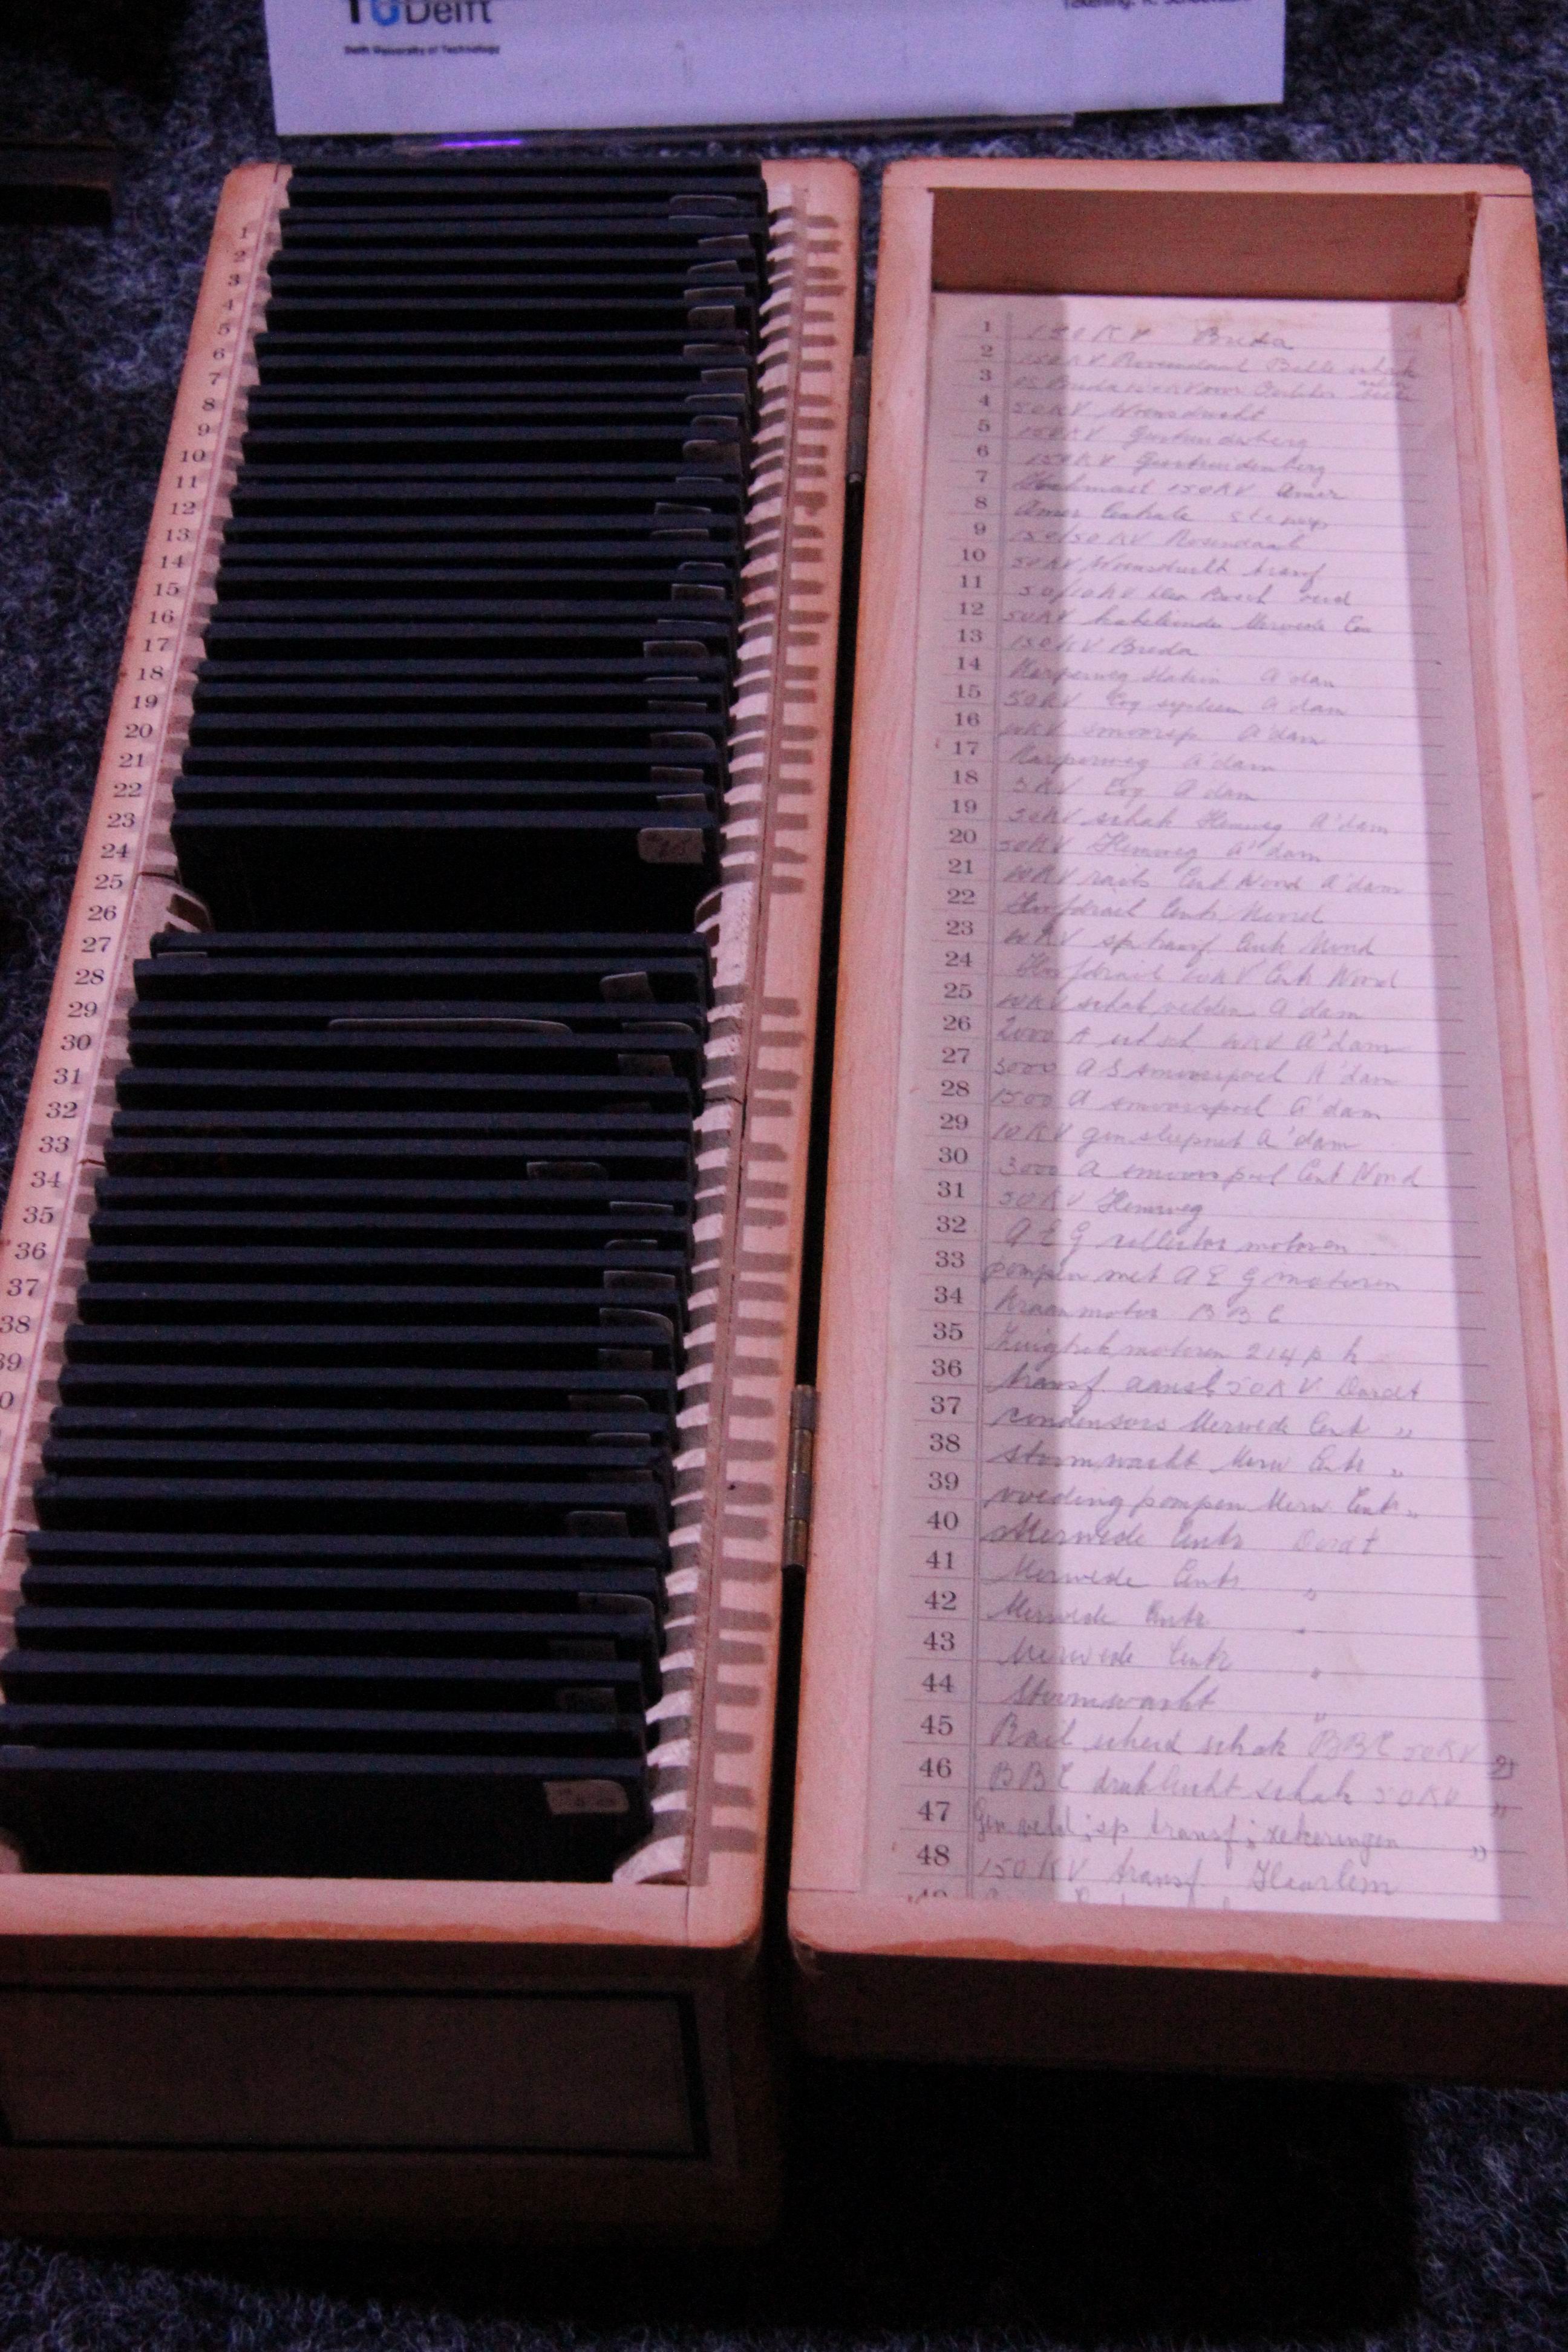 TU Delft
Delft University of Technology
Tekening:
1
2
3
4
5
6
7
8
9
10
11
12
13
14
15
16
17
18
19
20
21
22
23
24
25
26
27
28
29
30
31
32
33
34
35
36
37
38
39
1 150 KV Breda
2 150 KV
3 Breda
4 50 KV Woensdrecht
5 150 KV Geertruidenberg
6 150 KV Geertruidenberg
7 150 KV Amer
8 Amer Centrale
9 150/50 KV Rosendaal
10 50 KV Woensdrecht transf
11 50/10 KV den Bosch
12 50 KV Merwede Cen
13 150 KV Breda
14 Karperweg station A'dam
15 50 KV Coq A'dam
16 smoorsp A'dam
17 Karperweg A'dam
18 3 KV Coq A'dam
19 50 KV schak Hemweg A'dam
20 50 KV Hemweg A'dam
21 10 KV rails Cent Noord A'dam
22 Hoofdrail Centr Noord
23 10 KV sp transf. Centr Noord
24 Hoofdrail 10 KV Centr Noord
25 10 KV schak velden A'dam
26 2000 A A'dam
27 3000 A smoorspoel A'dam
28 1500 A smoorspoel A'dam
29 10 KV gen sleepnet A'dam
30 3000 A smoorspoel Cent Noord
31 50 KV Hemweg
32 A E G collector motoren
33 pompen met A E G motoren
34 Kraanmotor B B C
35 motoren 214 p k
36 transf. aansl 50 KV Dordt
37 condensors Merwede Cent "
38 stormwacht Merw Centr "
39 voeding pompen Merw Centr "
40 Merwede Centr Dordt
41 Merwede Centr "
42 Merwede Centr "
43 Merwede Centr "
44 Stormwacht "
45 Rail scheid schak BBC 50 KV
46 BBC druklucht schak 50 KV "
47 Gen veld; sp transf; zekeringen "
48 150 KV transf. Haarlem
49